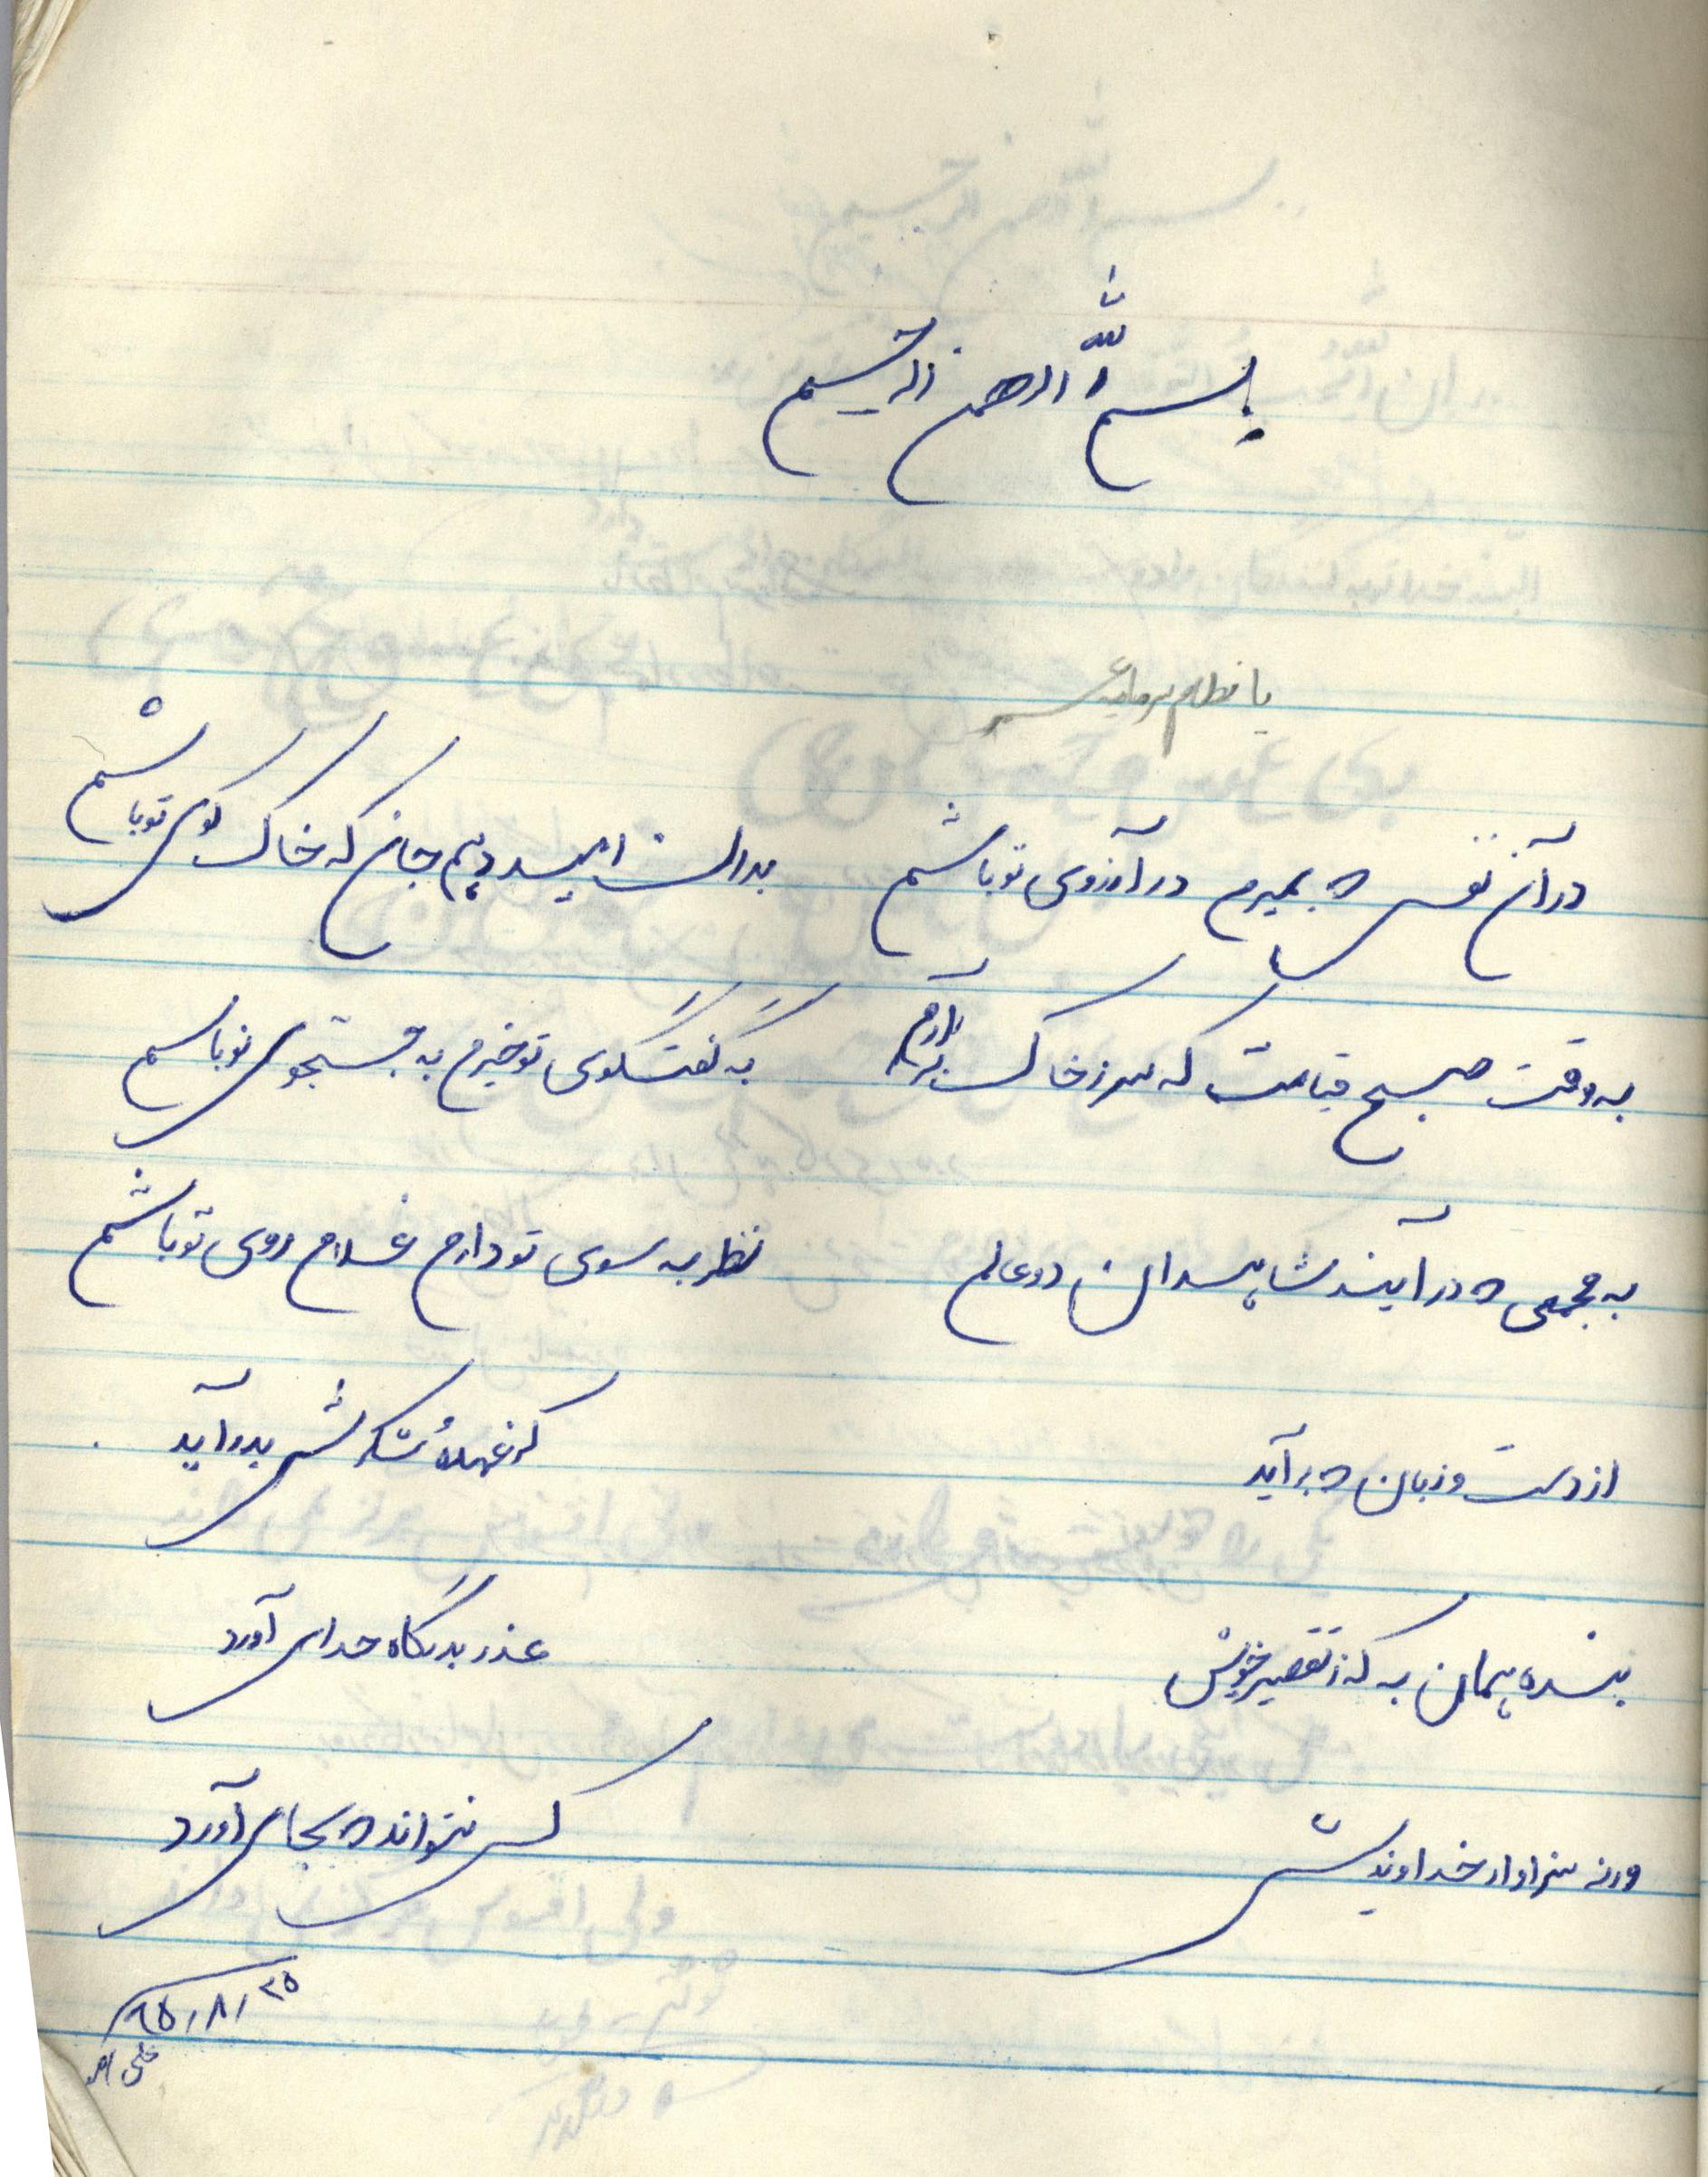 بسم الله الرحمن الرحیم
در آن نفس که بمیرم در آرزوی تو باشم بدان امید دهم جان که خاک کوی تو باشم
به وقت صبح قیامت که سر ز خاک برآرم به گفتگوی تو خیزم به جستجوی تو باشم
به مجمعی که درآیند شاهدان دو عالم نظر به سوی تو دارم غلام روی تو باشم
از دست و زبان که برآید کز عهدهٔ شکرش بدرآید
بنده همان به که ز تقصیر خویش عذر بدرگاه خدای آورد
ورنه سزاوار خداوندیش کس نتواند که بجای آورد
۶۵/۸/۲۵